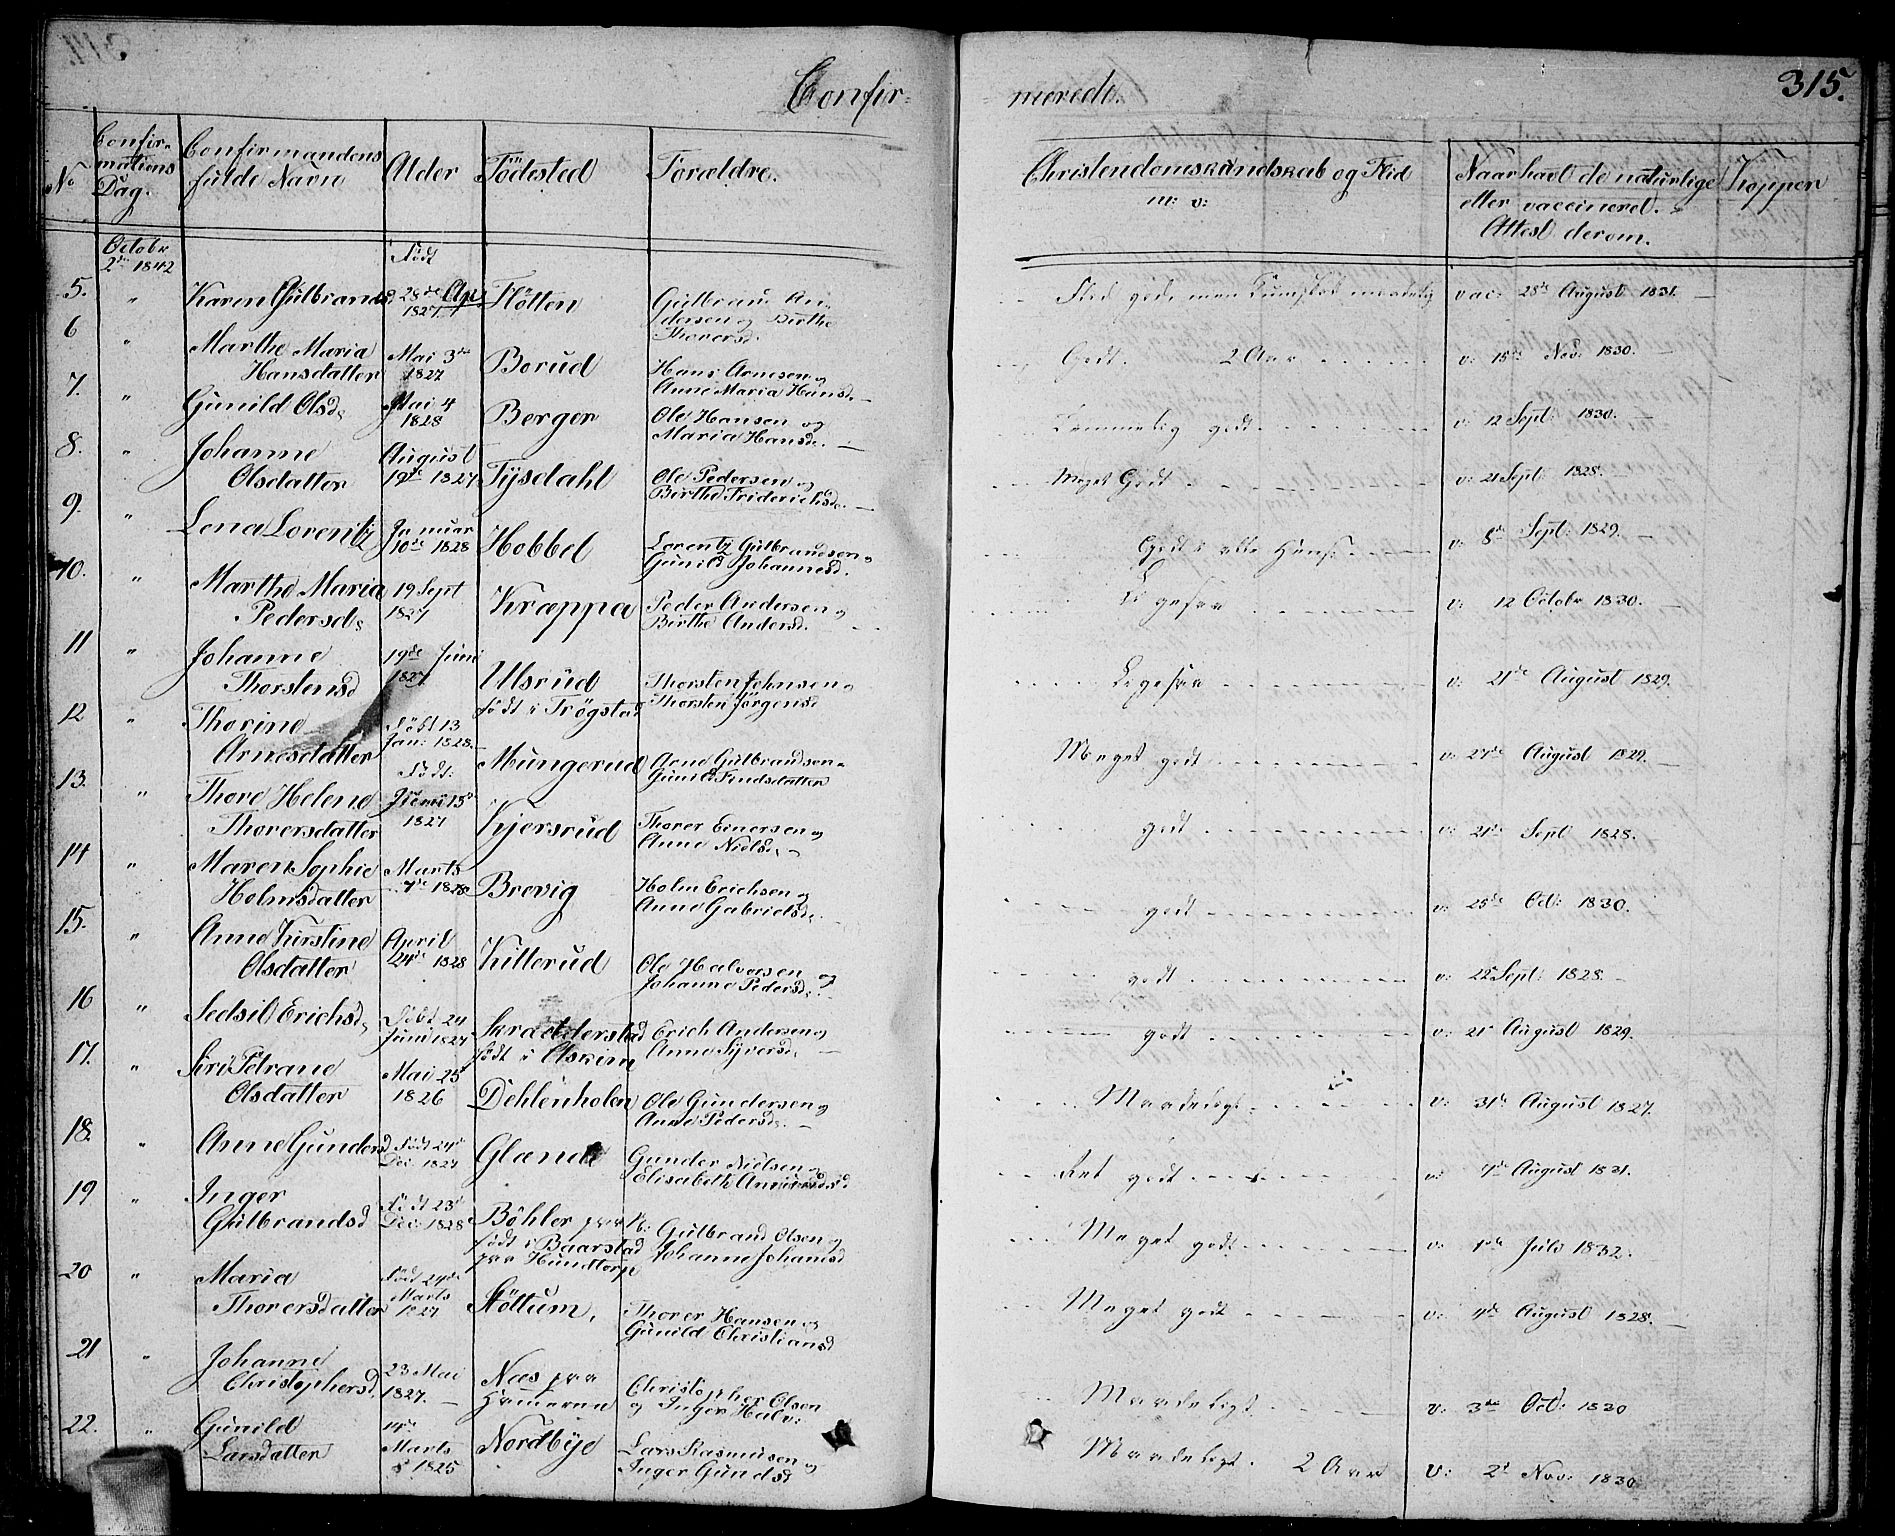 315.
Confir-
meredt.
No
Confir-
mations
Dag.
Confirmandens
fulde Navn
Alder
Födested
Forældre.
Christendomskundskab og Flid
m: v:
Naar havt de naturlige Kopper
eller vaccineret.
Attest derom.
Octobr
2den 1842
Födt
5. " Karen Gulbrandsd. 28de Ap. 1827 Flötten Gulbran Andersen og Birthe Thorersd. vac: 28de August 1831.
6 " Marthe Maria Hansdatter Mai 3de 1827 Borud Hans Arnesen og Anne Maria Hansd. Godt. 2 Aar v: 15de Nov: 1830.
7. " Gunild Olsd. Mai 4 1828 Berger Ole Hansen og Maria Hansd. Temmelig godt v: 12 Sept: 1830.
8. " Johanne Olsdatter August 19de 1827 Tysdahl Ole Pedersen og Birthe Friderichsd. Meget Godt v: 21 Sept: 1828.
9. " Lena Lorentz Januar 10de 1828 Hobbel Lorentz Gulbrandsen og Gunild Johannesd. v: 8de Sept: 1829.
10. " Marthe Maria Pedersd. 19 Sept 1827 Kræppa Peder Andersen og Birthe Andersd. Ligesaa v: 12 Octobr 1830.
11 " Johanne Thorstensd 19de Juni 1827 Ulsrud födt i Trögstad Thorsten Johnsen og Thorsten Jörgensd Ligesaa v: 21de August 1829.
12 " Thorine Arnesdatter Födt 13 Jan: 1828. Mungerud Arne Gulbrandsen og Gunild Findsdatter Meget godt v: 27de August 1829.
13. " Thore Helene Thorersdatter Födt: Juni 15de 1827 Kjersrud Thorer Enersen og Anne Nielsd. godt v: 21de Sept 1828.
14 " Maren Sophie Holmsdatter Marts 7de 1828 Brevig Holm Erichsen og Anne Gabrielsd. godt v: 25de Oct: 1830.
15. " Anne Kirstine Olsdatter April 24de 1828 Kitterud Ole Halvorsen og Johanne Pedersd. godt v: 22 Sept: 1828.
16 " Sedsil Erichsd. Födt 24 Juni 1827 Skradderstad födt i Askim Erich Andersen og Anne Syversd. godt v: 21 August 1829.
17. " Siri Petrane Olsdatter Mai 25d 1826 Dehlenholen Ole Gundersen og Anne Pedersd. Maadeligt v: 31te August 1827.
18. " Anne Gundersd Födt 24d Dec: 1827 Glende Gunder Nielsen og Elisabeth Ret godt v: 7de August 1831.
19 " Inger Gulbrandsd Födt 23d Dec: 1828 Böhler paa N: födt i Baarstad paa Hundtorp Gulbrand Olsen og Johanne Johansd Meget godt v: 1de Juli 1832.
20 " Maria Thorersdatter Födt 24de Marts 1827 Stöttum, Thorer Hansen og Gunild Christiansd Meget godt v: 4de August 1828.
21 " Johanne Christophersd. 23 Mai 1827. Næs paa Christopher Olsen og Inger Halv: Maadeligt v: 3de Oct: 1830
22. " Gunild Larsdatter Marts 1825 Nordbye Lars Rasmusen og Inger Gundsd Maadeligt. 2 Aar v: 2d Nov: 1830